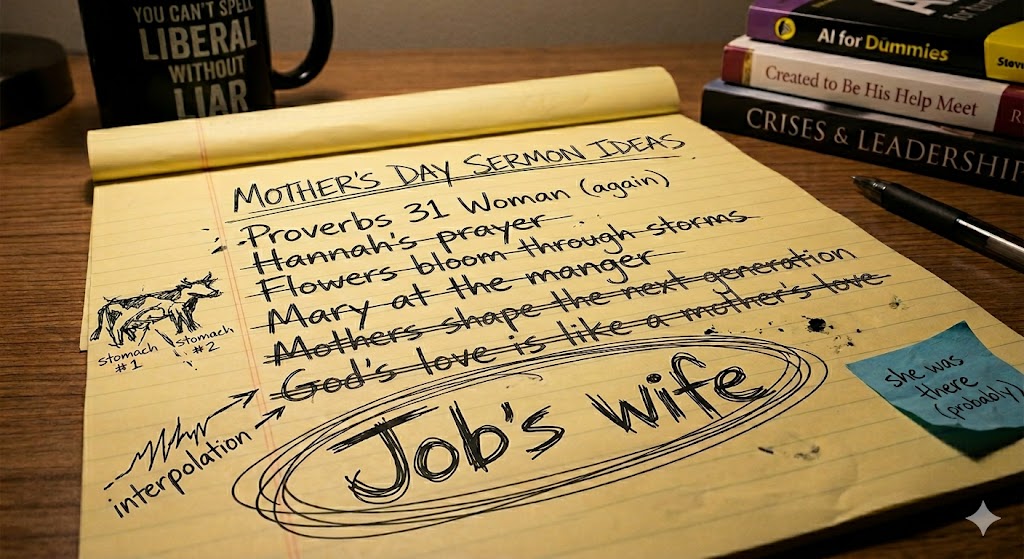 YOU CAN'T SPELL
LIBERAL
WITHOUT
LIAR
AI for Dummies
Created to Be His Help Meet
CRISES & LEADERSHIP
MOTHER'S DAY SERMON IDEAS
Proverbs 31 Woman (again)
Hannah's prayer
Flowers bloom through storms
Mary at the manger
Mothers shape the next generation
God's love is like a mother's love
Job's wife
stomach
#1
stomach
#2
interpolation
she was
there
(probably)